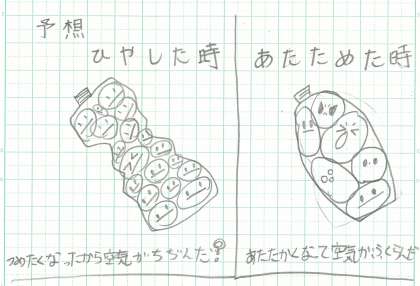 予想
ひやした時
つめたくなったから空気がちぢんだ!
あたためた時
あたたかくなって空気がふくらんだ